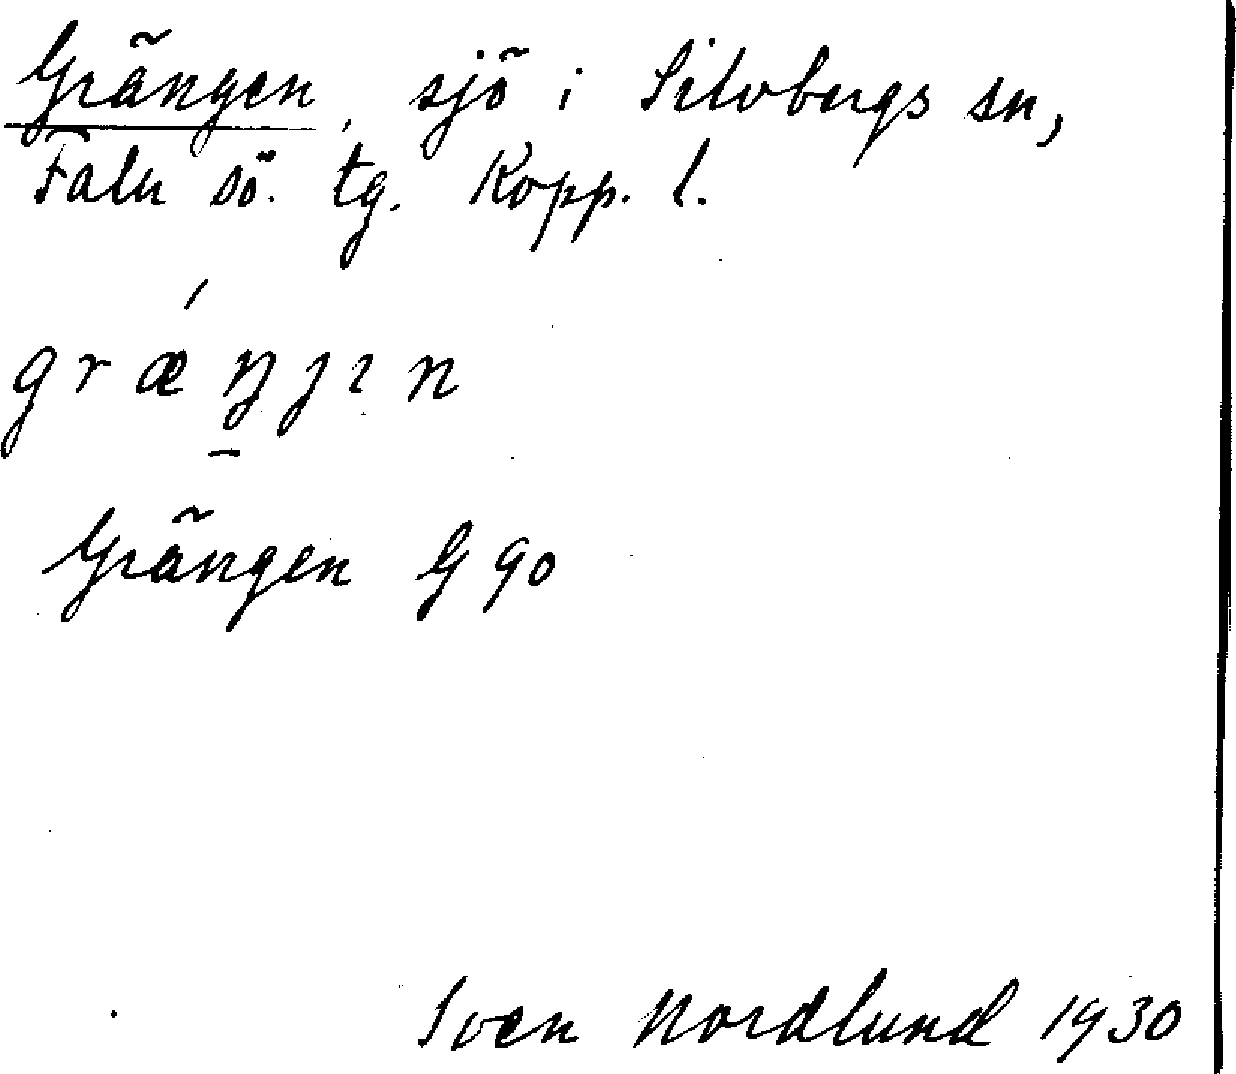 Grängen, sjö i Silvbergs sn,
Falu sö. tg. Kopp. l.
grǽŋ̠ȷın
Grängen G 90
Sven Nordlund 1930